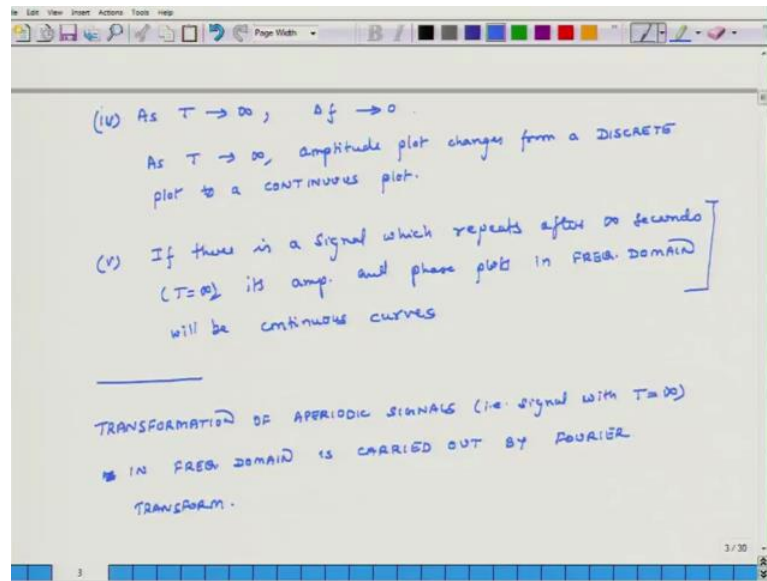 Edit View Insert Actions Tools Help
Page Width
B I
(iv) As T → ∞, Δf → 0.
As T → ∞, amplitude plot changes from a DISCRETE
plot to a CONTINUOUS plot.
(v) If there is a signal which repeats after ∞ seconds
(T=∞) its amp. and phase plots in FREQ. DOMAIN
will be continuous curves
TRANSFORMATION OF APERIODIC SIGNALS (i.e. signal with T=∞)
IN FREQ. DOMAIN IS CARRIED OUT BY FOURIER
TRANSFORM.
3/30
3